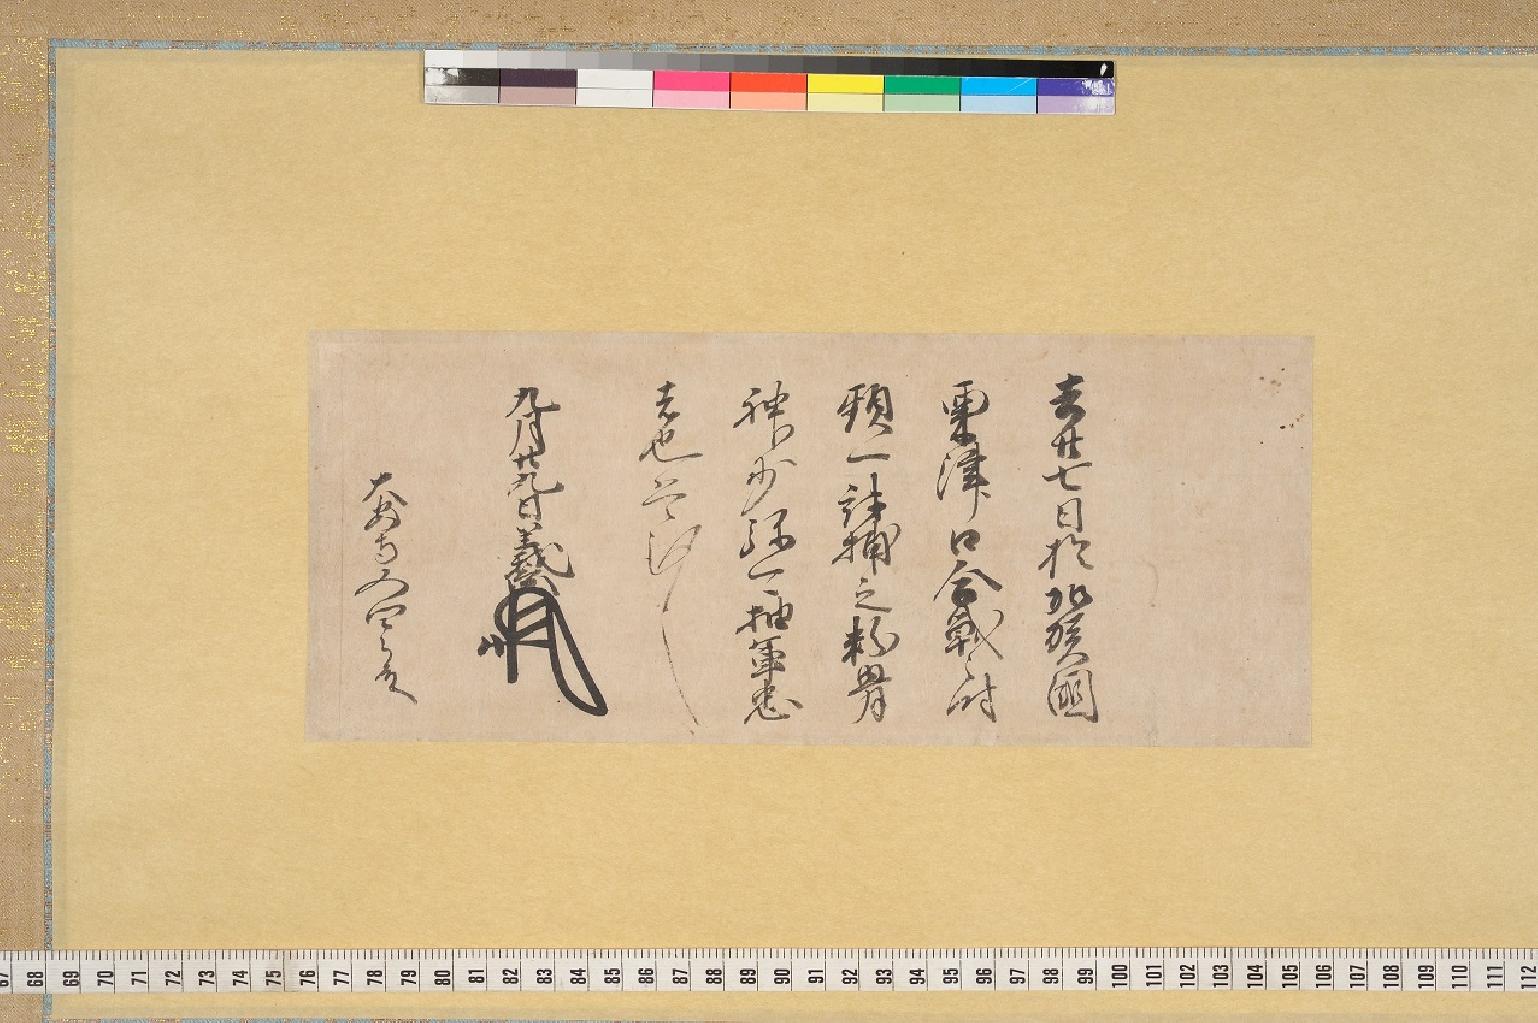 去廿七日於加賀國
粟津口合戦之時
頸一討捕之粉骨
神妙弥可抽軍忠
者也謹言
九月廿九日義
67 68 69 70 71 72 73 74 75 76 77 78 79 80 81 82 83 84 85 86 87 88 89 90 91 92 93 94 95 96 97 98 99 100 101 102 103 104 105 106 107 108 109 110 111 112